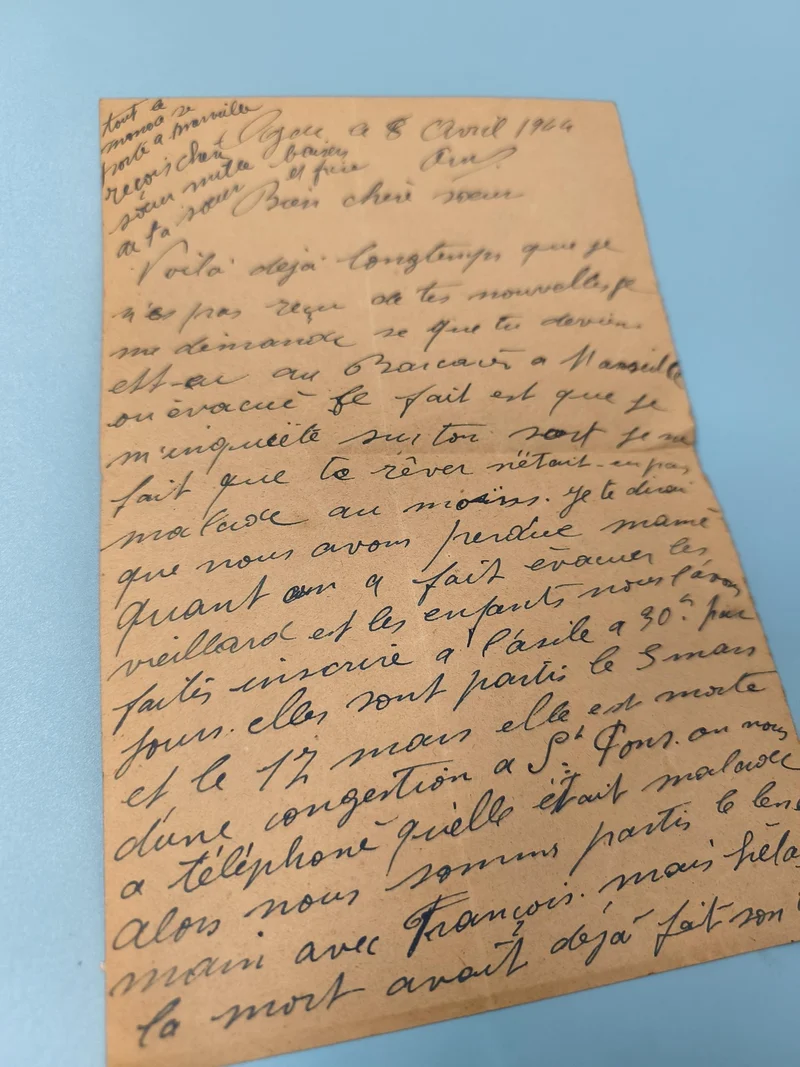 tout le
monde se
porte a merveille
reçois chère
sœur mille baisers
de ta sœur et frère
a 8 Avril 1944
Bien chère sœur
Voilà dejà longtemps que je
n'es pas reçu de tes nouvelles je
me demande se que tu deviens
est-ce au Barcarès a Marseille
ou évacué Le fait est que je
m'inquiète sur ton sort je ne
fait que te rêver n'était-en pas
malade au moins. Je te dirai
que nous avons perdue mamé
quant on a fait évacuer les
vieillard et les enfants nous l'avons
faites inscrire a l'asile a 30 par
jours. elles sont partis le 3 mars
et le 17 mars elle est morte
d'une congestion a St Pons. on nous
a téléphoné qu'elle était malade
alors nous sommes partis le lende
main avec François. mais hélas
la mort avait déjà fait son